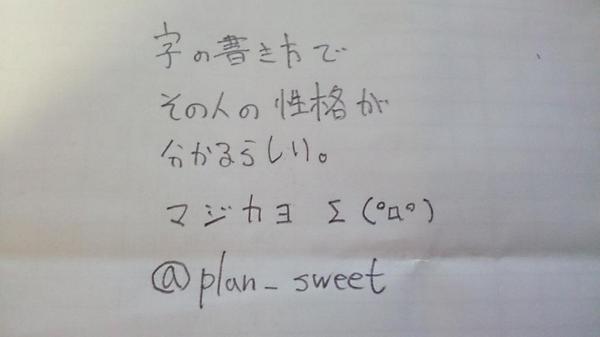 字の書き方で
その人の性格が
分かるらしい。
マジカヨ Σ(°ロ°)
@plan_sweet